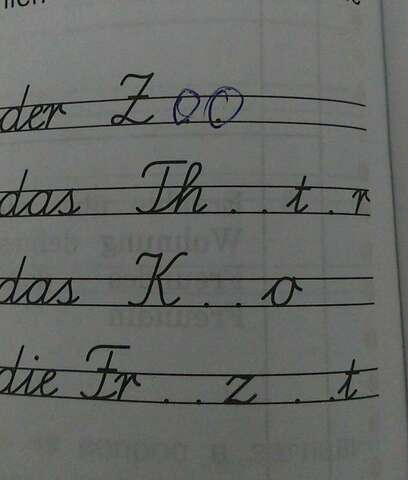 der Zoo
das Th . . t . r
das K . . o
die Fr . . z . . t